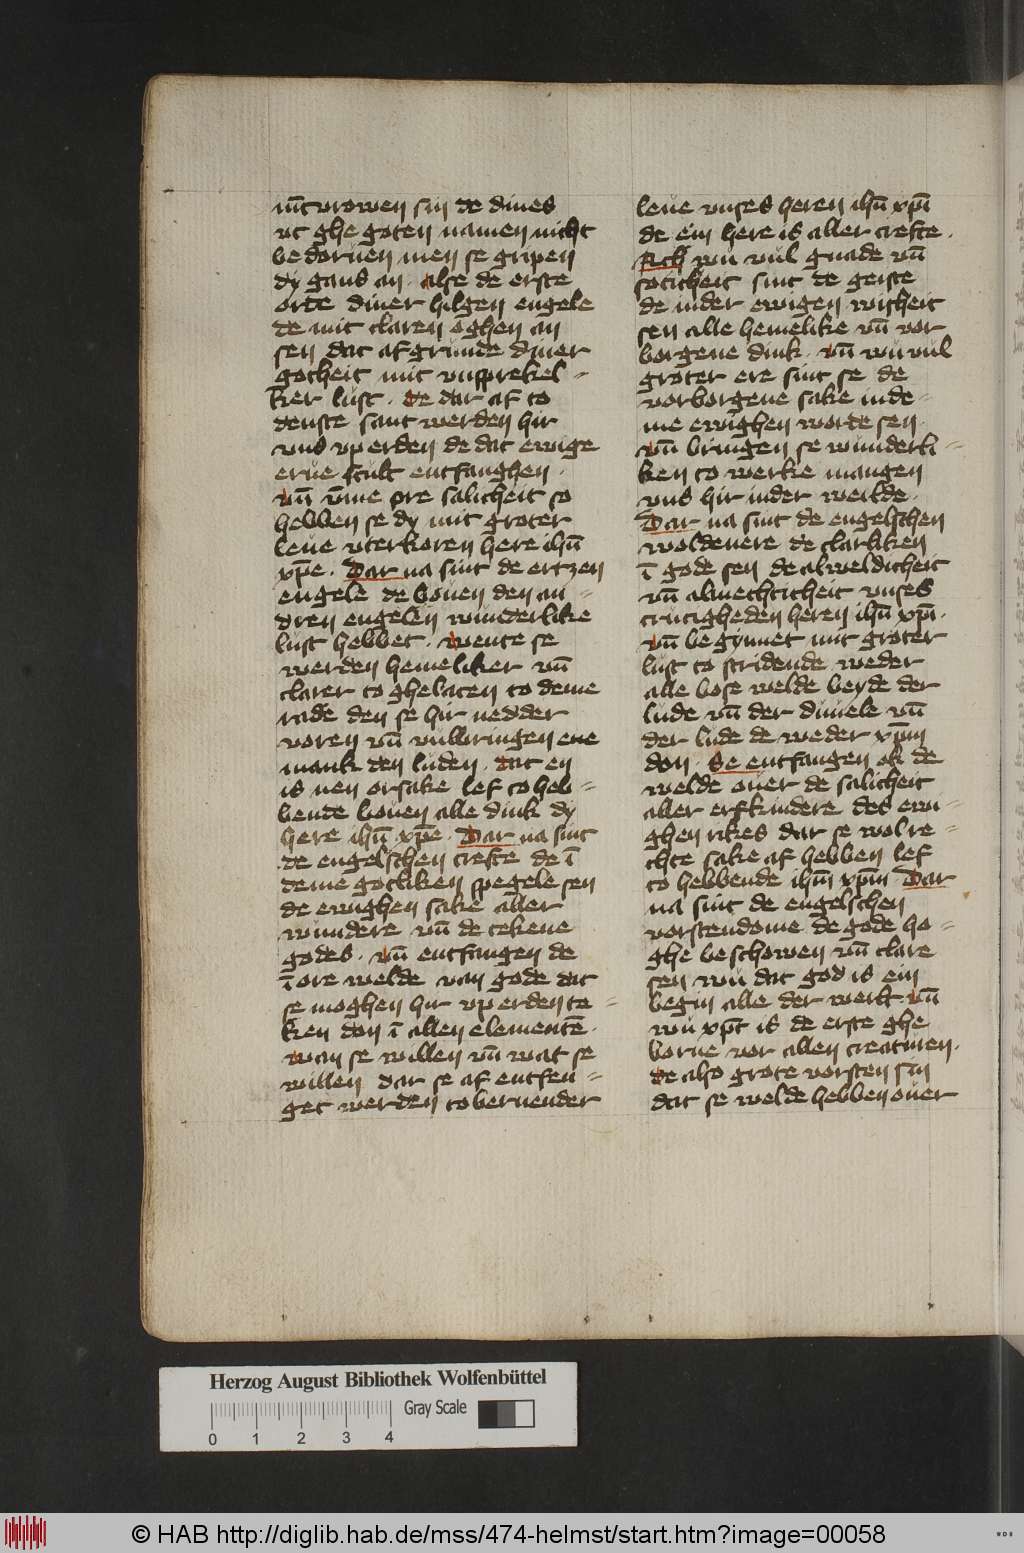 mit vrowen sin de dines
vt ghe goten namen nicht
bedoruen men se gripen
dy gans an. alse de erste
orde diner hilgen engele
de mit claren oghen an
sen dat afgrunde diner
gotheit mit vnsprekel=
ker lust. de dar af to
denste sant werden hir
vns vp erden de dat ewige
erue scult entfanghen.
vn̄ v̄me ore salicheit so
hebben se dy mit groter
leue vterkoren here ih̄u
xp̄e. Dar na sint de ertzen
engele de bouen den an=
dren engelen wunderlike
lust hebbet. wente se
werden hemeliker vn̄
clarer to ghelaten to deme
rade den se hir nedder
voren vn̄ vulbringen ene
mank den luden. dat en
is nen orsake lef to heb=
bende bouen alle dink dy
here ih̄u xp̄e. Dar na sint
de engelschen crefte de ī
deme gotliken spegele sen
de ewighen sake aller
wundere vn̄ de tekene
godes. vn̄ entfangen de
ī ore welde van gode dat
se moghen hir vp erden te=
ken don ī allen elementē.
wan se willen vn̄ wat se
willen dar se af entfen=
get werden to bernender
leue vnses heren ih̄u xp̄i
de ein here is aller crefte.
Ach wu vul gnade vn̄
soticheit sint de geiste
de in der ewigen wisheit
sen alle hemelike vn̄ vor
borgene dink. vn̄ wu vul
groter ere sint se de
vorborgene sake in de=
me ewighen worde sen.
vn̄ bringen se wunderli=
ken to werke mangen
vns hir in der werlde.
Dar na sint de engelschen
woldenere de clarliken
ī gode sen de alweldicheit
vn̄ almechticheit vnses
crucigheden heren ih̄u xp̄i.
vn̄ begynnet mit groter
lust to stridende weder
alle bose welde beyde der
lude vn̄ der duuele vn̄
der lude de weder xp̄m
don. Se entfangen ok de
welde ouer de salicheit
aller erfkindere des ewi=
ghen rikes dar se wol re=
chte sake af hebben lef
to hebbende ih̄m xp̄m Dar
na sint de engelschen
vorstendome de gode ho=
ghe beschowen vn̄ clare
sen wu dat god is ein
begin alle der werlt vn̄
wu xp̄c is de erste ghe
borne vor allen creaturen.
de also grote vorsten sin
dat se welde hebben ouer
Herzog August Bibliothek Wolfenbüttel
Gray Scale
0 1 2 3 4
© HAB http://diglib.hab.de/mss/474-helmst/start.htm?image=00058
WDB